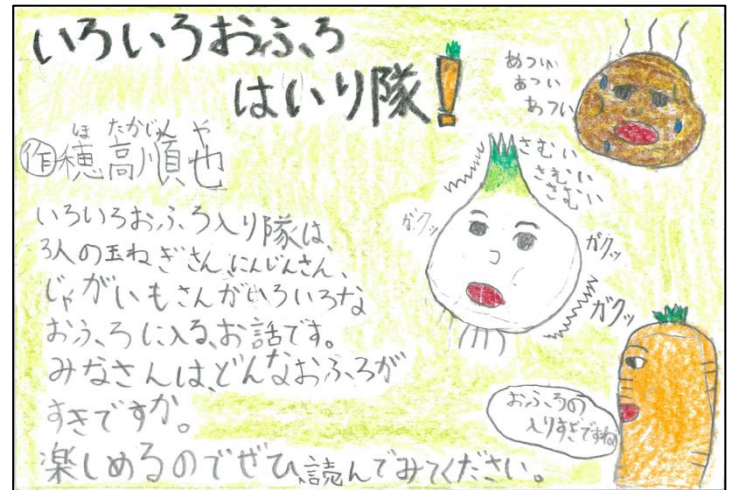 いろいろおふろ
はいり隊!
作 穂高順也
ほ たかじゅん や
いろいろおふろ入り隊は、
3人の玉ねぎさん、にんじんさん、
じゃがいもさんがいろいろな
おふろに入る、お話です。
みなさんは、どんなおふろが
すきですか。
楽しめるのでぜひ、読んでみてください。
あつい
あつい
あつい
さむい
さむい
さむい
ガクッ
ガクッ
ガクッ
おふろの
入りすぎですね